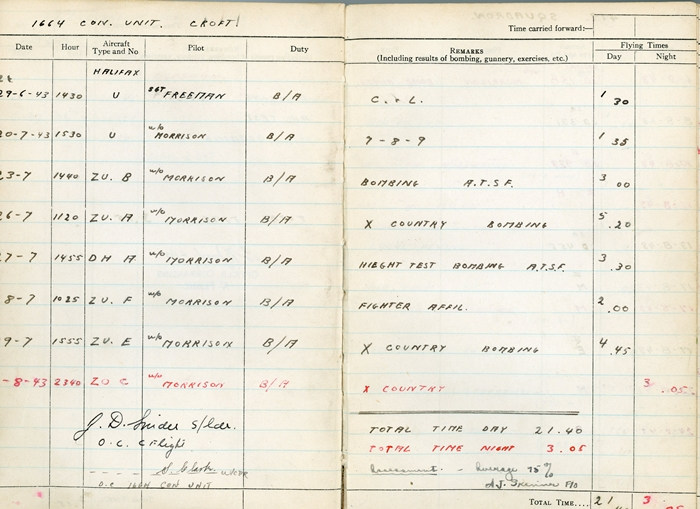 1664 CON. UNIT. CROFT.
Time carried forward:—
Date Hour Aircraft Type and No Pilot Duty REMARKS (Including results of bombing, gunnery, exercises, etc.) Flying Times Day Night
HALIFAX
29-6-43 1430 U SGT FREEMAN B/A C. & L. 1 30
20-7-43 1530 U W/O MORRISON B/A 7-8-9 1 35
23-7 1440 ZU. B W/O MORRISON B/A BOMBING A.T.S.F. 3 00
26-7 1120 ZU. A W/O MORRISON B/A X COUNTRY BOMBING 5 .20
27-7 1455 DH A W/O MORRISON B/A HIEGHT TEST BOMBING A.T.S.F. 3 .30
8-7 1025 ZU. F W/O MORRISON B/A FIGHTER AFFIL. 2 .00
9-7 1555 ZU. E W/O MORRISON B/A X COUNTRY BOMBING 4 .45
-8-43 2340 ZU C W/O MORRISON B/A X COUNTRY 3 .05.
J. D. Snider S/Ldr.
O.C. C Flight
TOTAL TIME DAY 21.40
TOTAL TIME NIGHT 3.05
Assessment. - Average 75%
F/O
O.C 1664 CON UNIT
TOTAL TIME.... 21 3.